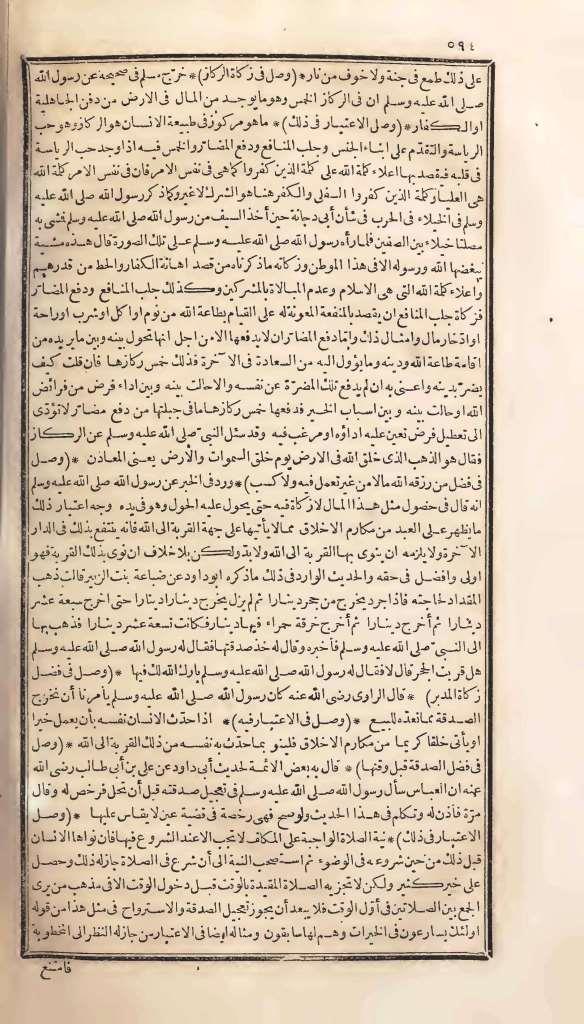 ٥٩٤
على ذلك طمع فى جنة ولا خوف من نار * (وصل فى زكاة الركاز) * خرّج مسلم فى صحيحه عن رسول الله
صلى الله عليه وسلم ان فى الركاز الخمس وهو ما يوجد من المال فى الارض من دفن الجاهلية
او الكفار * (وصل الاعتبار فى ذلك) * ما هو مركوز فى طبيعة الانسان هو الركاز وهو حب
الرياسة والتقدّم على ابناء الجنس وجلب المنافع ودفع المضارّ والخمس فيه اذا وجد حب الرياسة
فى قلبه فيقصد بها اعلاء كلمة الله على كلمة الذين كفروا كما هى فى نفس الامر فان فى نفس الامر كلمة الله
هى العليا وكلمة الذين كفروا السفلى والكفر هنا هو الشرك لا غير وكما ذكر رسول الله صلى الله عليه
وسلم فى الخيلاء فى الحرب فى شأن أبى دجانة حين أخذ السيف من رسول الله صلى الله عليه وسلم فمشى به
مصلتا خيلاء بين الصفين فلما رآه رسول الله صلى الله عليه وسلم على تلك الصورة قال هذه مشية
يبغضها الله ورسوله الا فى هذا الموطن وزكاته ما ذكرناه من قصد اهانة الكفار والحط من قدرهم
واعلاء كلمة الله التى هى الاسلام وعدم المبالاة بالمشركين وكذلك جلب المنافع ودفع المضارّ
فزكاة جلب المنافع ان يقصد بالمنفعة المعونة له على القيام بطاعة الله من نوم او اكل او شرب او راحة
او ادّخار مال وامثال ذلك وانما دفع المضار ان لا يدفعها الا من اجل انها تحول بينه وبين ما يريده من
اقامة طاعة الله ودينه وما يؤول اليه من السعادة فى الآخرة فذلك خمس ركازها فان قلت كيف
يضرّ بدينه واعنى به ان لم يدفع تلك المضرّة عن نفسه والا حالت بينه وبين اداء فرض من فرائض
الله او حالت بينه وبين اسباب الخير فدفعها خمس ركازها ما فى جبلتها من دفع مضار لا تؤدّى
الى تعطيل فرض تعين عليه اداؤه او مرغب فيه وقد سئل النبىّ صلى الله عليه وسلم عن الركاز
فقال هو الذهب الذى خلق الله فى الارض يوم خلق السموات والأرض يعنى المعادن * (وصل
فى فضل من رزقه الله مالا من غير تعمل فيه ولا كسب) * ورد فى الخبر عن رسول الله صلى الله عليه وسلم
انه قال فى حصول مثل هذا المال لا زكاة فيه حتى يحول عليه الحول وهو فى يده وجه اعتبار ذلك
ما يظهر على العبد من مكارم الاخلاق مما لا يأتيها على جهة القربة الى الله فانه ينتفع بذلك فى الدار
الآخرة ولا يلزمه ان ينوى بها القربة الى الله ولا بدّ ولكن بلا خلاف ان نوى بذلك القربة فهو
اولى وافضل فى حقه والحديث الوارد فى ذلك ما ذكره ابو داود عن ضباعة بنت الزبير قالت ذهب
المقداد لحاجته فاذا جرذ يخرج من جحر دينارا ثم لم يزل يخرج دينارا دينارا حتى اخرج سبعة عشر
دينارا ثم أخرج دينارا ثم أخرج خرقة حمراء فيها دينار فكانت تسعة عشر دينارا فذهب بها
الى النبىّ صلى الله عليه وسلم فأخبره وقال له خذ صدقتها فقال له رسول الله صلى الله عليه وسلم
هل قربت الجحر قال لا فقال له رسول الله صلى الله عليه وسلم بارك الله لك فيها * (وصل فى فضل
زكاة المدبر) * قال الراوى رضى الله عنه كان رسول الله صلى الله عليه وسلم يأمرنا أن نخرج
الصدقة مما نعدّه للبيع * (وصل فى الاعتبار فيه) * اذا حدّث الانسان نفسه بأن يعمل خيرا
او يأتى خلقا كريما من مكارم الاخلاق فلينو بما حدّث به نفسه من ذلك القربة الى الله * (وصل
فى فضل الصدقة قبل وقتها) * قال به بعض الائمة لحديث أبى داود عن على بن أبى طالب رضى الله
عنه ان العباس سأل رسول الله صلى الله عليه وسلم فى تعجيل صدقته قبل أن تحل فرخص له وقال
مرّة فأذن له وتكلم فى هذا الحديث ولو صح فهى رخصة فى قضية عين لا يقاس عليها * (وصل
الاعتبار فى ذلك) * نية الصلاة الواجبة على المكلف لا تجب الا عند الشروع فيها فان نواها الانسان
قبل ذلك من حين شروعه فى الوضوء ثم استصحب النية الى أن شرع فى الصلاة جاز له ذلك وحصل
على خير كثير ولكن لا تجزيه الصلاة المقيدة بالوقت قبل دخول الوقت الا فى مذهب من يرى
الجمع بين الصلاتين فى أوّل الوقت فلا يبعد أن يجوز تعجيل الصدقة والاسترواح فى مثل هذا من قوله
اولئك يسارعون فى الخيرات وهم لها سابقون ومثاله ايضا فى الاعتبار من جاز له النظر الى المخطوبة
فامتنع